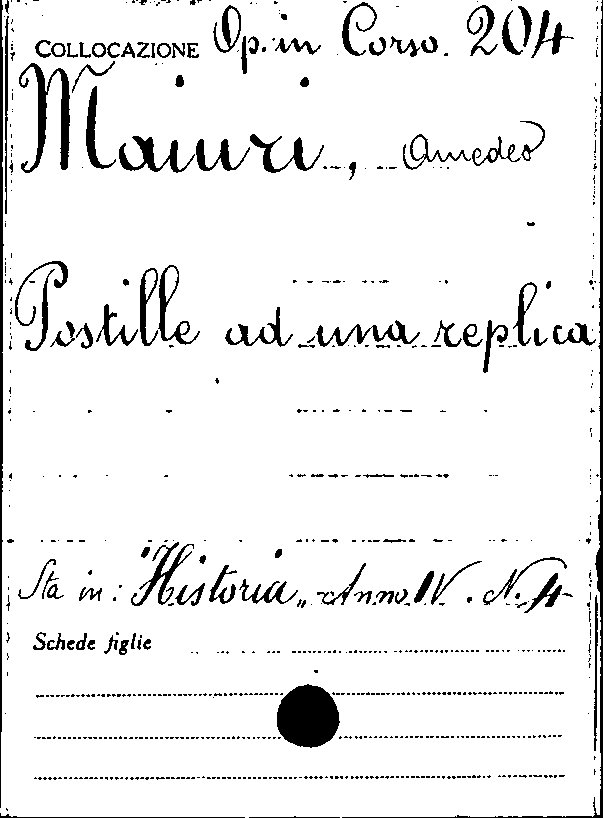 COLLOCAZIONE Op. in Corso. 204
Maiuri, Amedeo
Postille ad una replica
Sta in: "Historia„ Anno IV. N. 4
Schede figlie